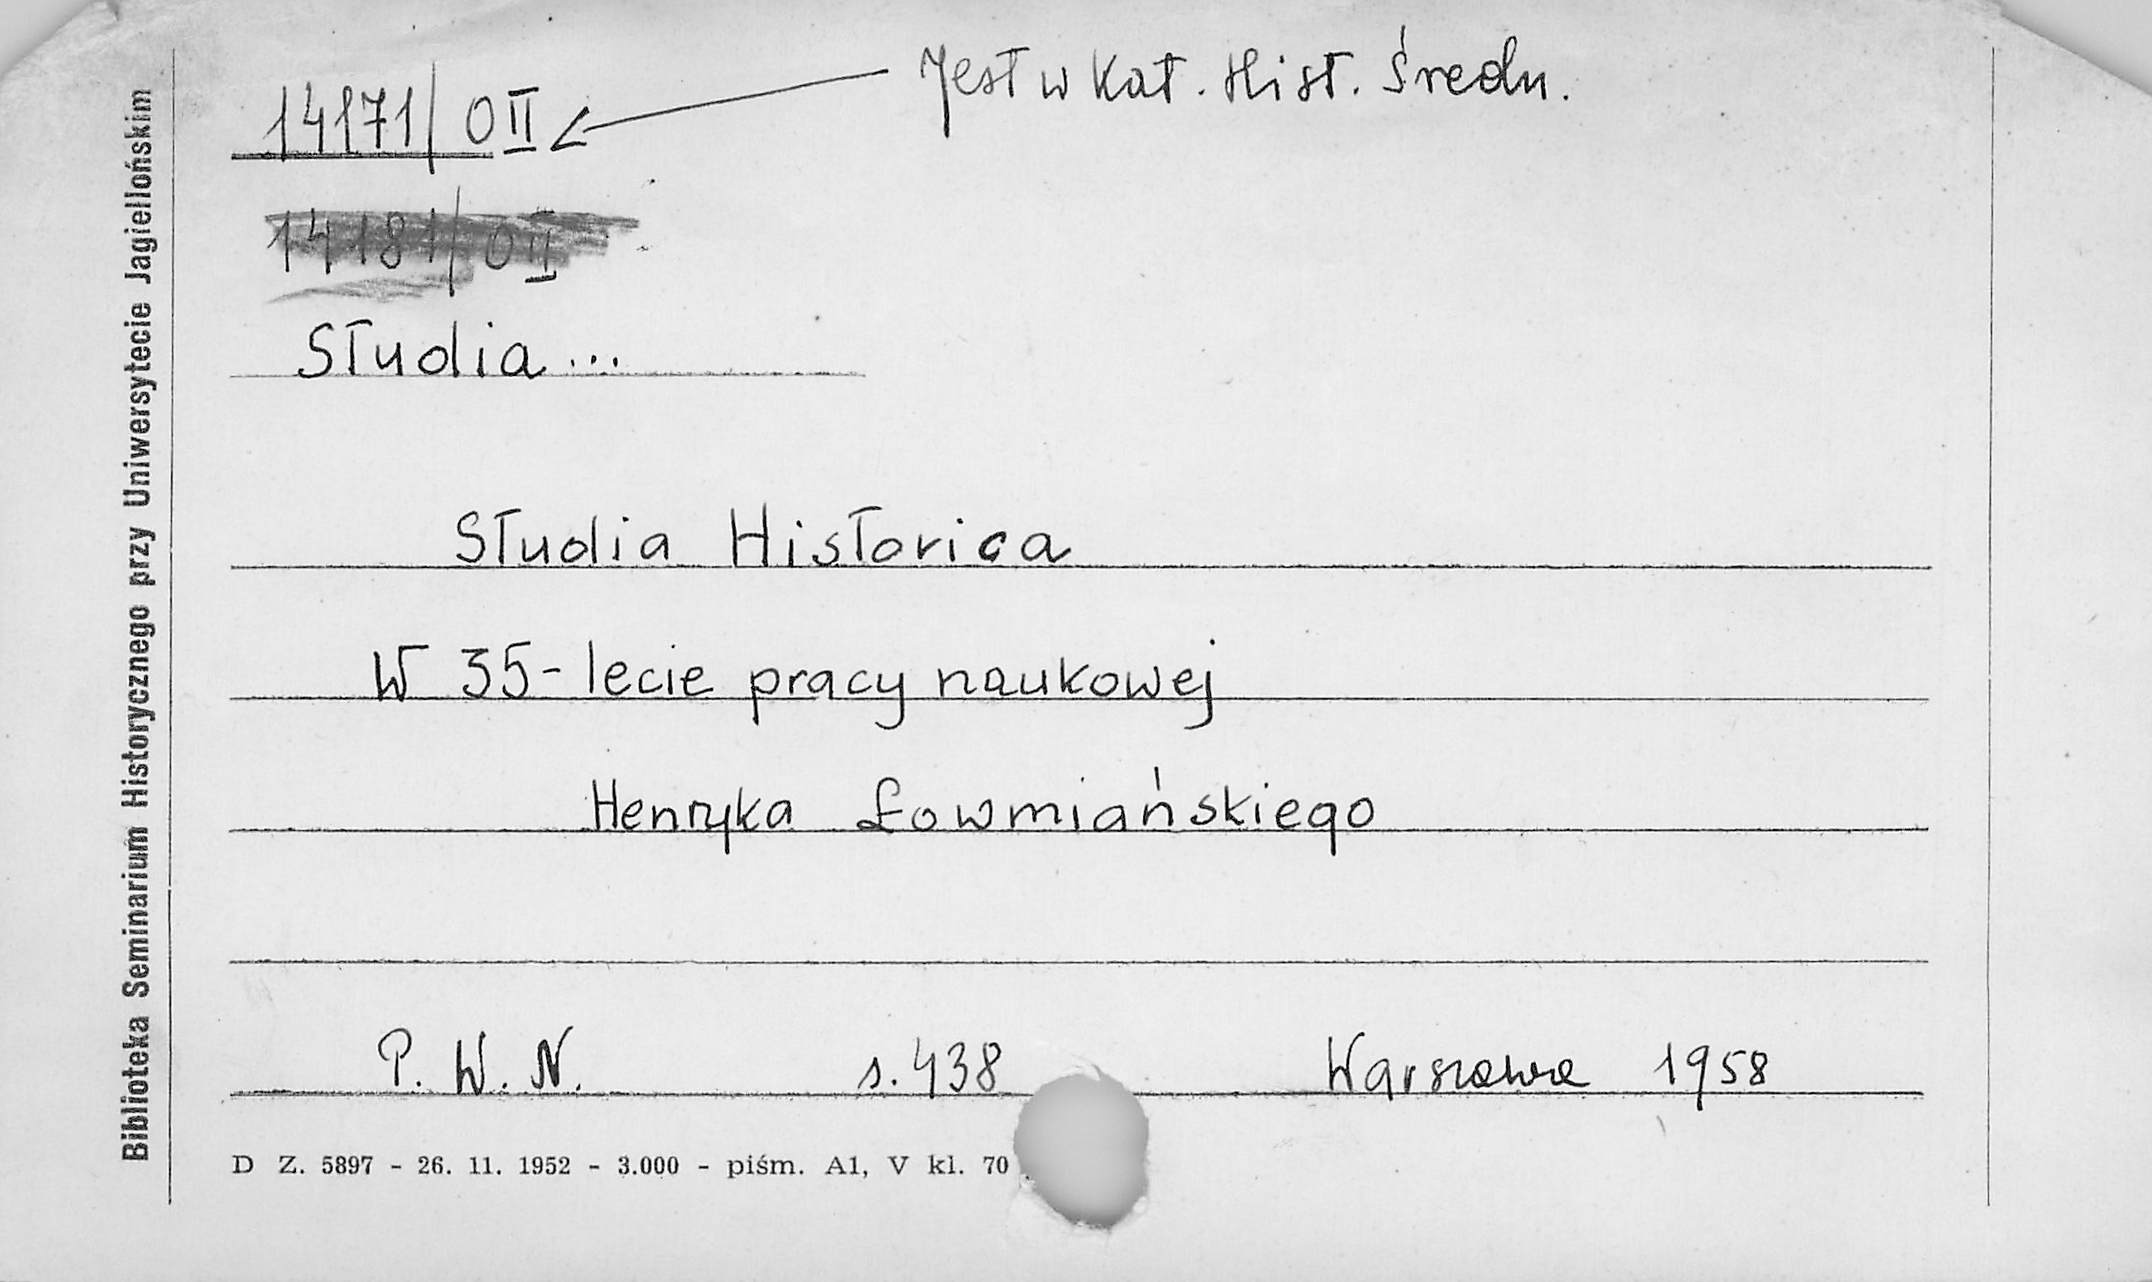 Jest w Kat. Hist. Średn.
14171/OII
14181/OII
Studia...
Studia Historica
W 35-lecie pracy naukowej
Henryka Łowmiańskiego
P. W. N. s. 438 Warszawa 1958
D Z. 5897 - 26. 11. 1952 - 3.000 - piśm. A1, V kl. 70
Biblioteka Seminarium Historycznego przy Uniwersytecie Jagiellońskim